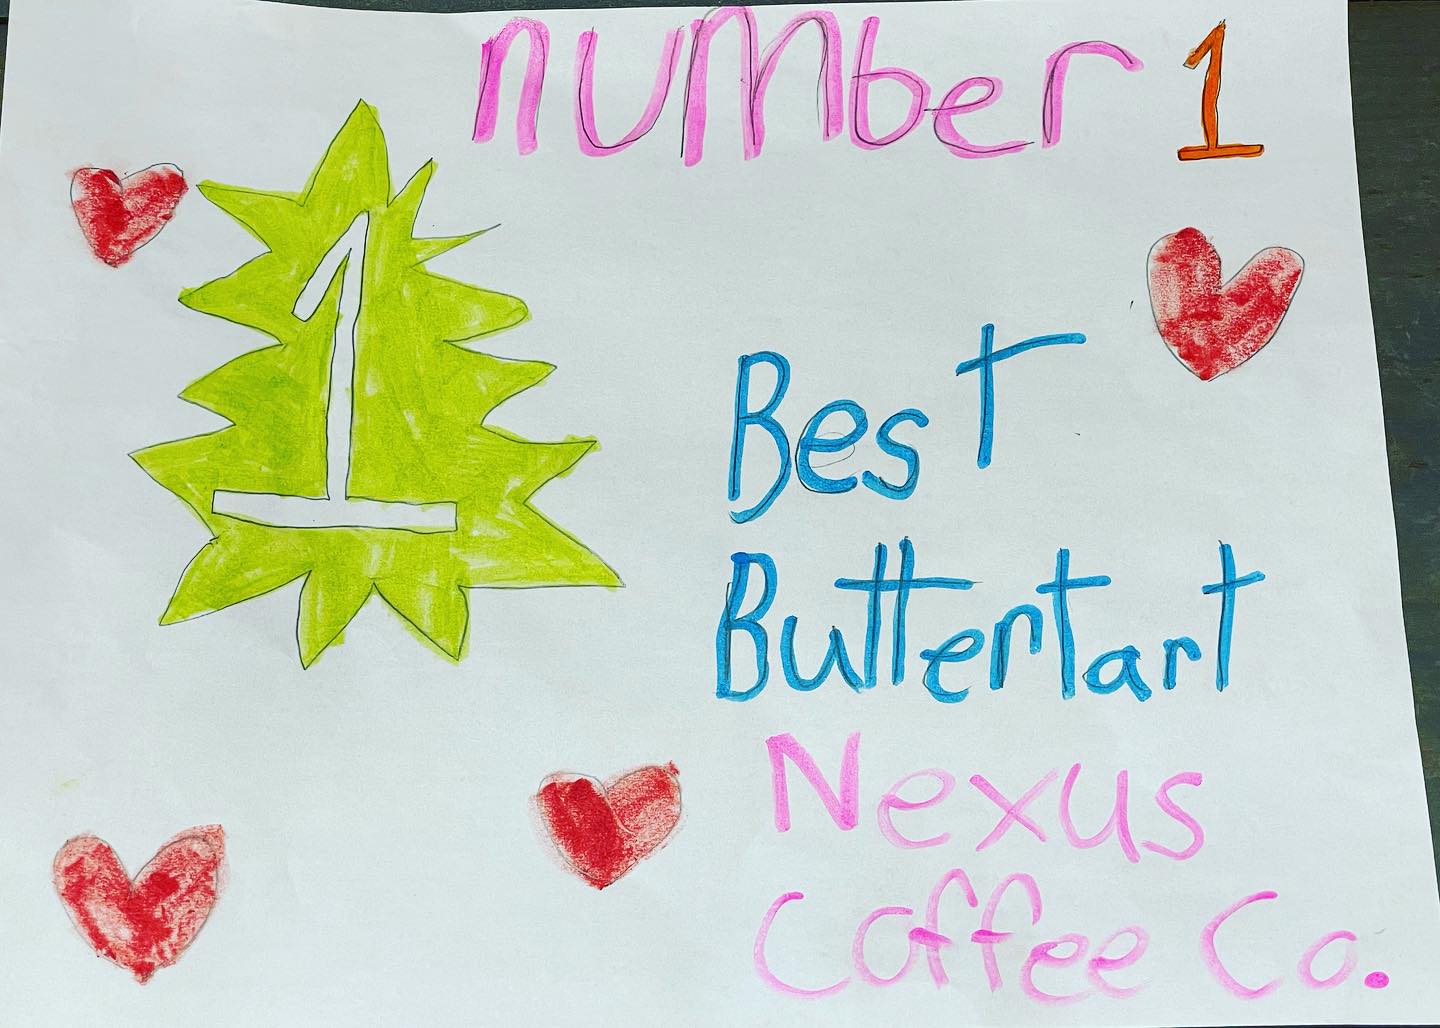 number 1
1
Best
Buttertart
Nexus
Coffee Co.